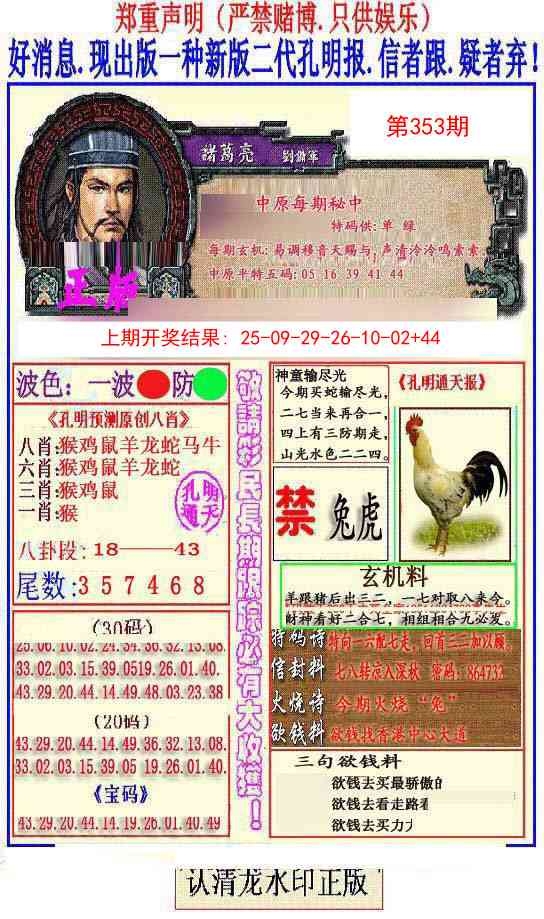 郑重声明（严禁赌博.只供娱乐）
好消息.现出版一种新版二代孔明报.信者跟.疑者弃!
第353期
諸葛亮
中原每期秘中
特码供:单 绿
每期玄机:易调移音天赐与,声清泠泠鸣索索.
中原平特五码:05 16 39 41 44
正版
上期开奖结果: 25-09-29-26-10-02+44
波色：一波 防
《孔明预测原创八肖》
八肖:猴鸡鼠羊龙蛇马牛
六肖:猴鸡鼠羊龙蛇
三肖:猴鸡鼠
一肖:猴
孔明
通天
八卦段:18——43
尾数:357468
敬請彩民長期跟踪必有大收獲！
神童输尽光
今期买蛇输尽光,
二七当来再合一,
四上有三防期走,
山光水色二二四。
《孔明通天报》
禁 兔虎
玄机料
羊跟猪后出三二、一七对取八来今。
财神看好二合七，相组相合九必发。
(30码)
25.06.10.02.24.34.36.32.13.08.
33.02.03.15.39.0519.26.01.40.
43.29.20.44.14.49.48.03.23.38
(20码)
43.29.20.44.14.49.36.32.13.08.
33.02.03.15.39.05 19.26.01.40.
《宝码》
43.29.20.44.14.19.26.01.40.49
特码诗 特向一六配七走，回首三三加以顾。
信封料 七八转凉入深秋 密码：864733
火烧诗 今期火烧“兔”
欲钱料 欲钱找香港中心大道
三句欲钱料
欲钱去买最骄傲的
欲钱去看走路看
欲钱去买力
认清龙水印正版